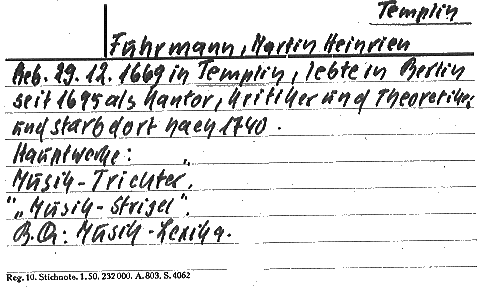 Templin
Fuhrmann, Martin Heinrich
Geb. 29.12.1669 in Templin, lebte in Berlin
seit 1695 als Kantor, Kritiker und Theoretiker
und starb dort nach 1740.
Hauptwerke:
Musik-Trichter.
"Musik-Strigel".
B.Q: Musik-Lexika.
Reg. 10. Stichnote. 1. 50. 232000. A. 803. S. 4062